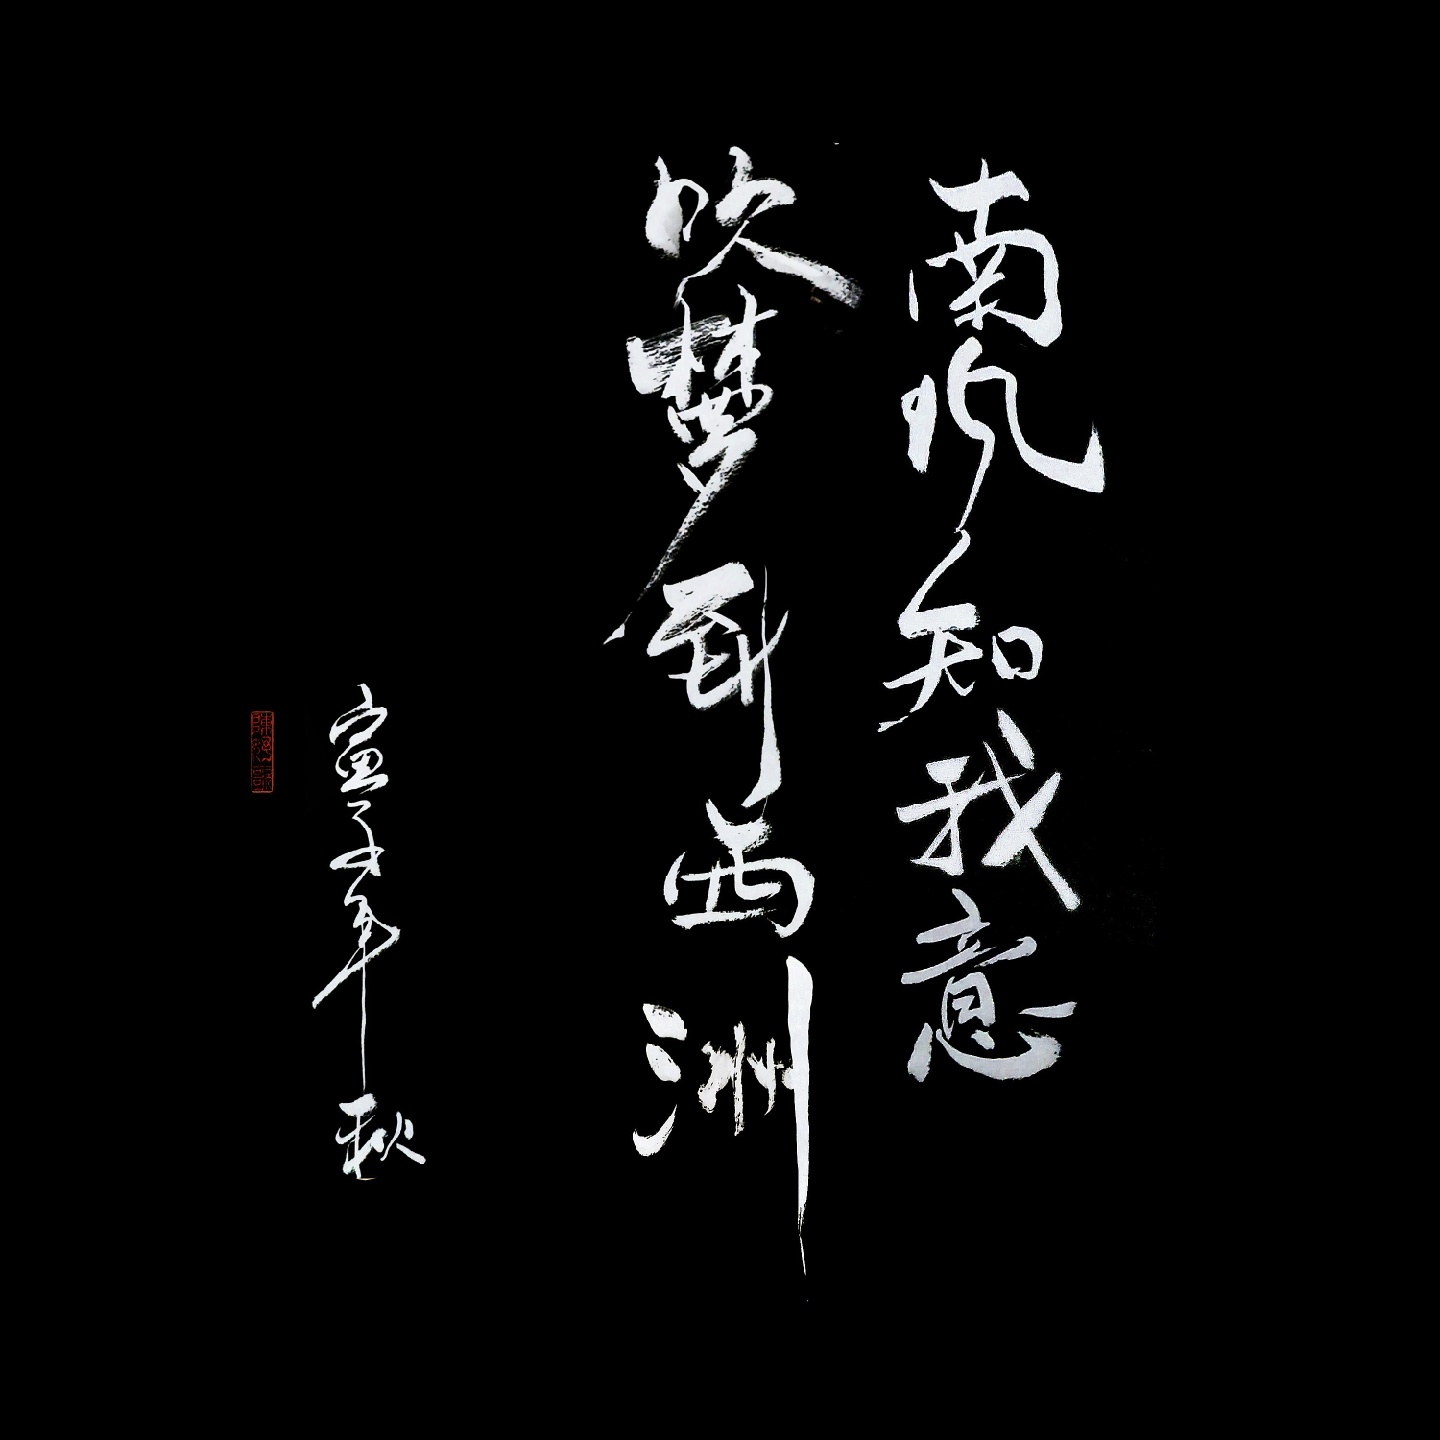 南风知我意
吹梦到西洲
子年秋